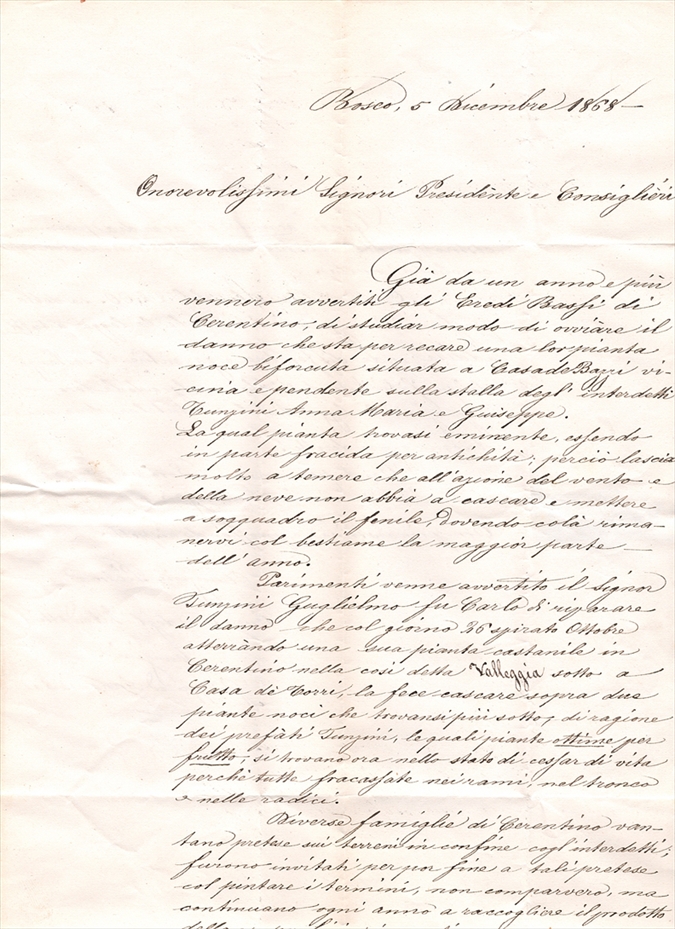 Bosco, 5 Dicembre 1868 —
Onorevolissimi Signori Presidente e Consiglieri
Già da un anno e più
vennero avvertiti gli Eredi Bassi di
Cerentino, di studiar modo di ovviare il
danno che sta per recare una lor pianta
noce biforcuta situata a Casa de Bazzi vi-
cina e pendente sulla stalla degl' interdetti
Tunzini Anna Maria e Guiseppe.
La qual pianta trovasi eminente, essendo
in parte fracida per antichità; perciò lascia
molto a temere che all'azione del vento e
della neve non abbia a cascare e mettere
a soqquadro il fenile, dovendo colà rima-
nervi col bestiame la maggior parte —
dell' anno.
Parimenti venne avvertito il Signor
Tunzini Guglielmo fu Carlo di riparare
il danno che col giorno 26 spirato Ottobre
atterràndo una sua pianta castanile in
Cerentino nella così detta Valleggia sotto a
Casa de Torri, la fece cascare sopra due
piante noci che trovansi più sotto, di ragione
dei prefàti Tunzini, le quali piante ottime per
frutto, si trovano ora nello stato di cessar di vita
perchè tutte fracassate nei rami, nel tronco
e nelle radici.
Diverse famiglie di Cerentino van-
tano pretese sui terreni in confine cogl'interdetti;
furono invitati per por fine a tali pretese
col pintare i termini, non comparvero, ma
continuano ogni anno a raccogliere il prodotto